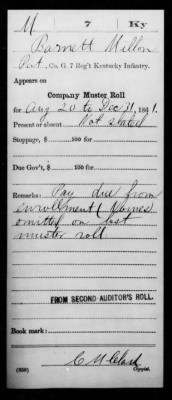 M 7 Ky
Barnett Millon
Pvt., Co. G, 7 Reg't Kentucky Infantry.
Appears on
Company Muster Roll
for Aug 20 to Dec 31, 1861.
Present or absent Not stated
Stoppage, $ 100 for
Due Gov't, $ 100 for
Remarks: Pay due from
enrollment (Names
omitted on last
muster roll
FROM SECOND AUDITOR'S ROLL.
Book mark:
C M Clark
(358) Copyist.